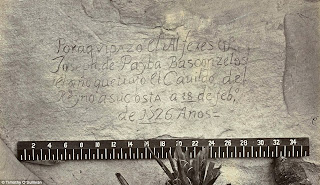 Por aqui pazo el Alferes Dn
Joseph de Payba Basconzelos
el año que trujo el Cavildo del
Reyno a su costa a 18 de feb,
de 1726 Años =
2 4 6 8 10 12 14 16 18 20 22 24 26 28 30 32 34
© Timothy O' Sullivan